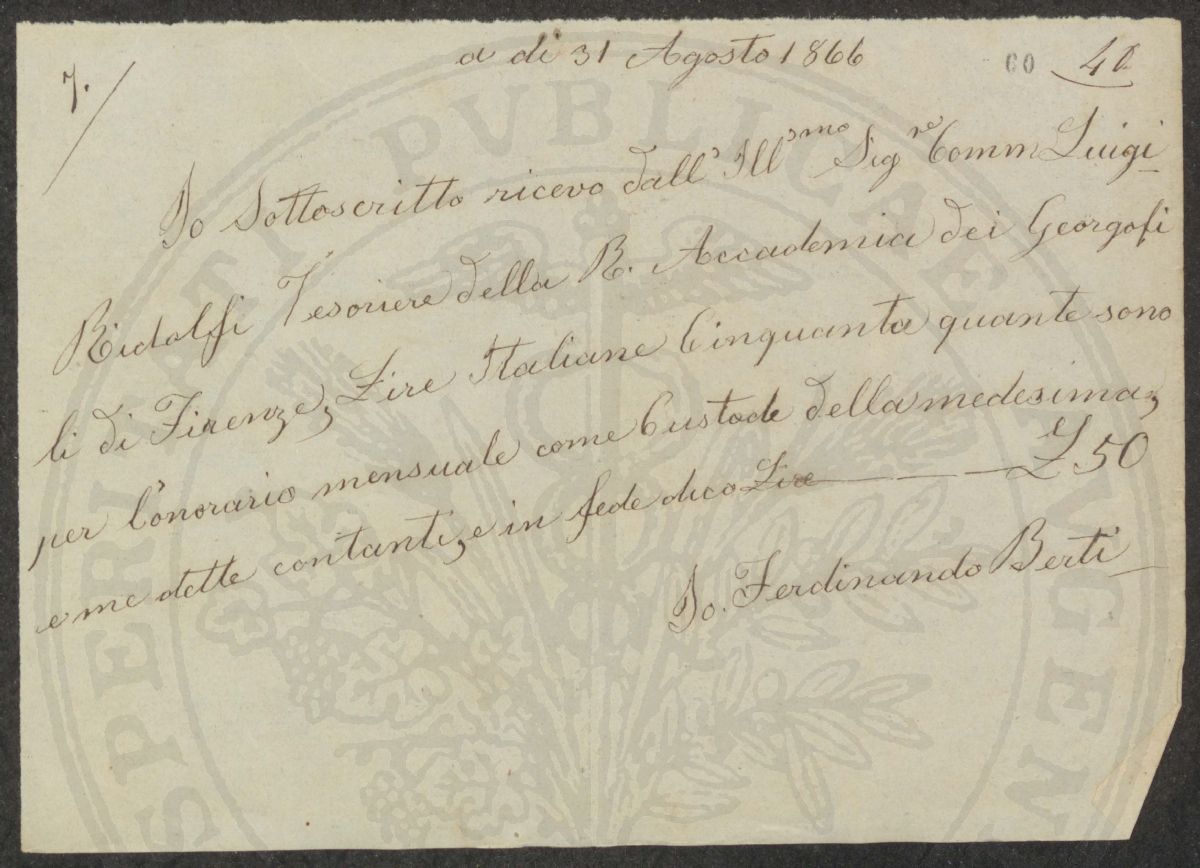 7.
a di 31 Agosto 1866
60
Io Sottoscritto ricevo dall' Ill.mo Sig.re Comm Luigi
Ridolfi Tesoriere della R. Accademia dei Georgofi
li di Firenze, Lire Italiane Cinquanta quante sono
per l'onorario mensuale come Custode della medesima,
e me dette contanti, e in fede dico Lire — £ 50
Io. Ferdinando Berti
PVBLICAE